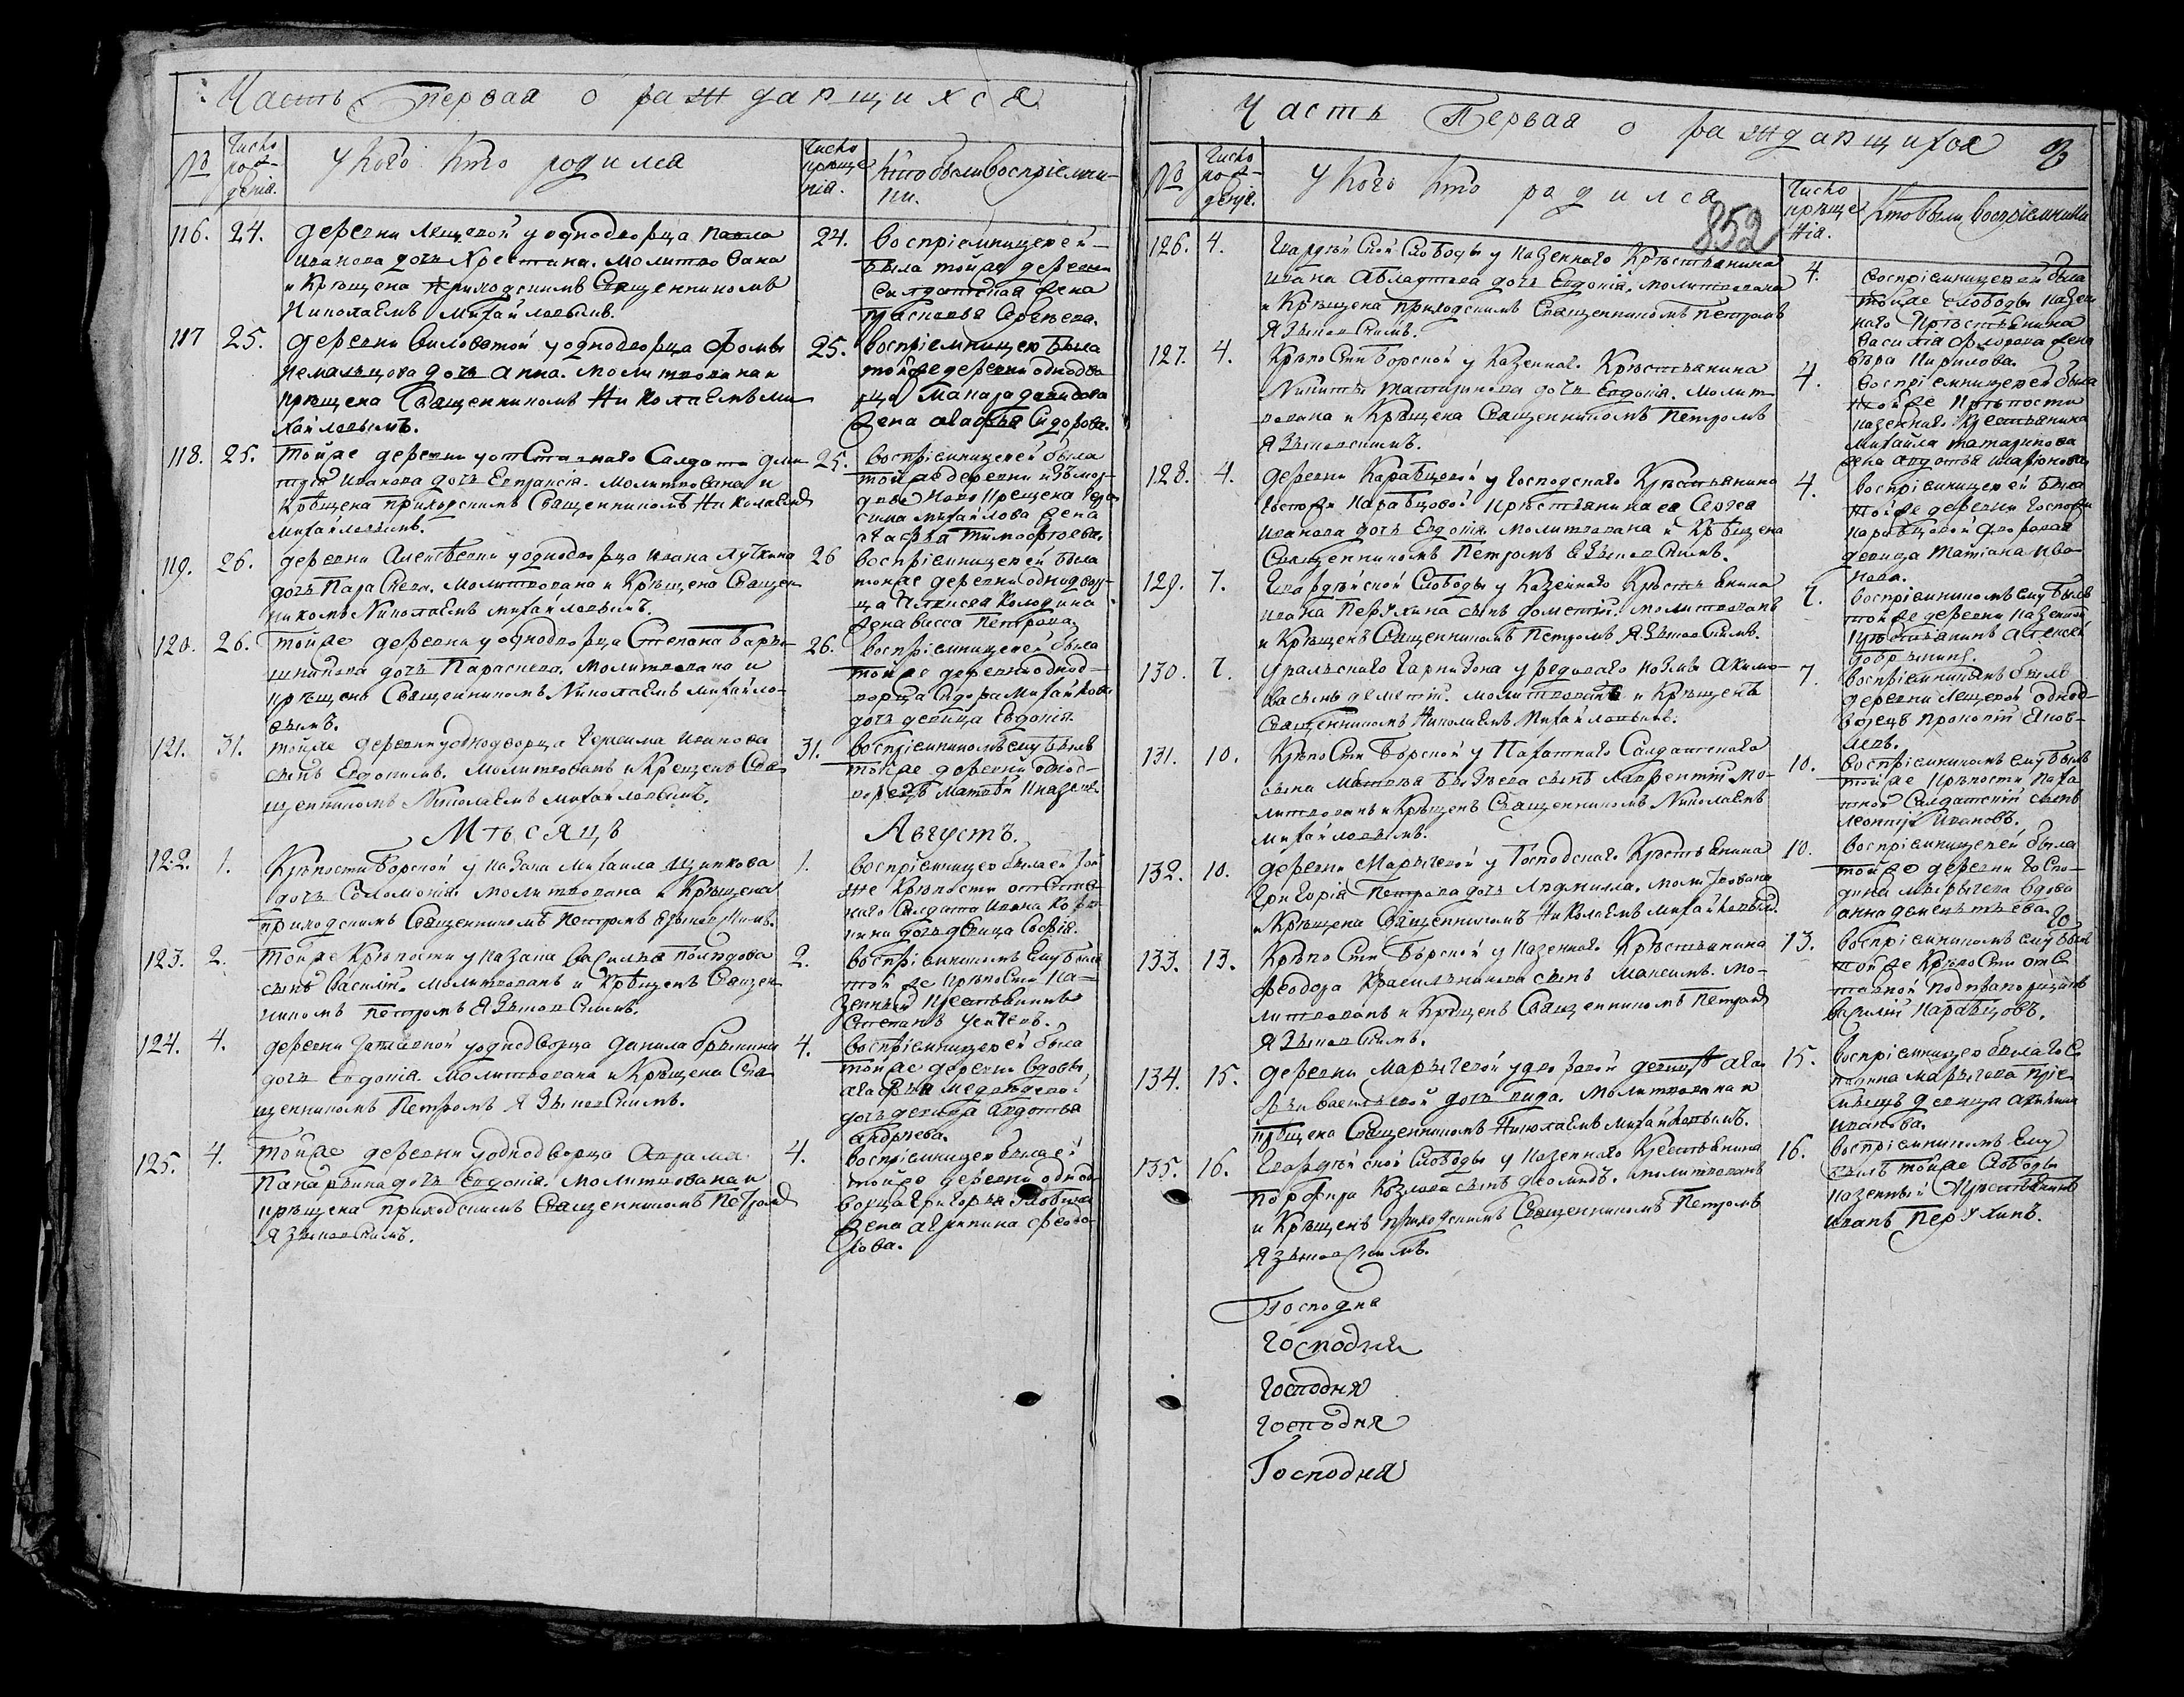 Часть первая о раждающихся
№
Число рождения.
У кого кто родился
Число крѣщения.
Кто были восприемники.
116. 24.
деревни Лещевой у однодворца Павла
Иванова дочь Христина. Молитвована
и Крѣщена приходскимъ Священникомъ
Николаемъ Михайловымъ.
24.
восприемницею ей
была тойже деревни
Салдатская жена
Прасковья Сергѣева.
117 25.
деревни Виловатой у однодворца Фомы
Немальцова дочь Анна. Молитвована и
крѣщена Священникомъ Николаемъ Ми
хайловымъ.
25.
восприемницею была
тойже деревни однодво
рца Давидова
жена Агафья Сидорова.
118. 25.
Тойже деревни у отставнаго Салдата Дми
трія Иванова дочь Евпраксія. Молитвована и
Крѣщена приходскимъ Священникомъ Николаемъ
Михайловымъ.
25.
восприемницею ей была
тойже деревни
новокрещена Гера
сима Михайлова жена
Агафья Тимофеева.
119. 26.
деревни Алексѣевки у однодворца Ивана Лучкина
дочь Параскева. Молитвована и Крѣщена Священ
никомъ Николаемъ Михайловымъ.
26
восприемницею ей была
тойже деревни однодвор
ца Алексея Колодина
жена Васса Петрова.
120. 26.
тойже деревни у однодворца Степана Бары
шникова дочь Параскева. Молитвована и
крѣщена Священникомъ Николаемъ Михайло-
вымъ.
26.
восприемницею ей была
тойже деревни однод-
ворца Сидора Михайлова
дочь девица Евдокія.
121. 31.
тойже деревни у однодворца Герасима Иванова
сынъ Евдокимъ. Молитвованъ и Крещенъ Свя
щенникомъ Николаемъ Михайловымъ.
31.
восприемникомъ ему былъ
тойже деревни однод-
ворецъ Матвѣй Князевъ.
Мѣсяцъ Августъ.
122. 1.
Крѣпости Борской у казака Михаила Щипкова
дочь Соломонія. молитвована и Крѣщена
приходскимъ Священникомъ Петромъ Языковскимъ.
1.
восприемницею была ей той
же Крѣпости отстав
наго Салдата Ивана
дочь девица Софія.
123. 2.
Тойже Крѣпости у казака Василья Полѣдова
сынъ Василій. Молитвованъ и Крѣщенъ Священ
никомъ Петромъ Языковскимъ.
2.
восприемникомъ Ему былъ
тойже крѣпости Ка-
зенный Крестьянинъ
Степанъ
124. 4.
деревни Заплавной у однодворца Данила
дочь Евдокія. Молитвована и Крѣщена Свя
щенникомъ Петромъ Языковскимъ.
4.
восприемницею ей была
тойже деревни вдовы
Агафьи Медведевой
дочь девица Авдотья
Андреева.
125. 4.
Тойже деревни у однодворца Абрама
Панарьина дочь Евдокія. Молитвована и
крѣщена приходскимъ Священникомъ Петромъ
Языковскимъ.
4.
восприемницею была ей
тойже деревни однод
ворца Григорья
жена Агрипина Федо
рова.
Часть Первая о раждающихся
852
№
Число рожденія.
У кого кто радился
Число крѣщения.
Кто были восприемники
126. 4.
Гвардѣйской Слободы у казеннаго Крѣстьянина
Ивана дочь Евдокія. Молитвована
и Крѣщена приходскимъ Священникомъ Петромъ
Языковскимъ.
4.
восприемницею ей была
тойже слободы казен
наго Крѣстьянина
Василія Фролова жена
Вѣра Кирилова.
127. 4.
Крѣпости Борской у Казеннаго Крѣстьянина
Никиты Татаринова дочь Евдокія. Молит-
вована и Крѣщена Священникомъ Петромъ
Языковскимъ.
4.
восприемницею ей была
тойже крѣпости
казеннаго Крестьянина
Михайла Татаринова
жена Авдотья Иларионова.
128. 4.
деревни Каравцовой у Господскаго Крѣстьянина
Госпожи Каравцовой Крѣстьянина ея Сергея
Иванова дочь Евдокія. Молитвована и Крѣщена
Священникомъ Петромъ Языковскимъ.
4.
восприемницею ей была
тойже деревни Госпожи
Каравцовой дворовая
девица Татіана Ива-
нова.
129. 7.
Гвардѣйской Слободы у Казеннаго Крѣстьянина
Ивана Перухина сынъ Дометій. Молитвованъ
и Крѣщенъ Священникомъ Петромъ Языковскимъ.
7.
восприемникомъ ему былъ
тойже деревни казенной
крѣстьянинъ Алексей
Добрынинъ.
130. 7.
Уральскаго Гарнизона у редоваго Козмы Акимо-
ва сынъ Деметій. Молитвованъ и Крѣщенъ
Священникомъ Николаемъ Михайловымъ.
7.
восприемникомъ былъ
деревни Лещевой однод-
ворецъ Прокопій

131. 10.
Крѣпости Борской у Пахатнаго Салдатскаго
сына Матвея сынъ Лаврентій Мо-
литвованъ и Крѣщенъ Священникомъ Николаемъ
Михайловымъ.
10.
восприемникомъ Ему былъ
тойже крѣпости Паха
тной Салдатскій сынъ
Леонтій Ивановъ.
132. 10.
деревни Марычевой у Господскаго Крѣстьянина
Григорія Петрова дочь Людмилла. Молитвована
и Крѣщена Священникомъ Николаемъ Михайловымъ.
10.
восприемницею ей была
тойже деревни Госпо-
дина Марычева вдова
Анна Дементьева.
133. 13.
Крѣпости Борской у Казеннаго Крѣстьянина
Феодора Красильникова сынъ Максимъ. Мо-
литвованъ и Крѣщенъ Священникомъ Петромъ
Языковскимъ.
13.
восприемникомъ ему былъ
тойже Крѣпости отс
тавной подпрапорщикъ
Василій Каравцовъ.
134. 15.
деревни Марычевой у дворовой девицы Ага
фьи Васильевой дочь Кира. Молитвована и
крѣщена Священникомъ Николаемъ Михайловымъ.
15.
восприемницею была Гос
подина Марычева пріе
мышъ девица
Иванова.
135. 16.
Гвардѣйской Слободы у казеннаго Крестьянина
Порфира Козлова сынъ Деомидъ. Молитвованъ
и Крѣщенъ приходскимъ Священникомъ Петромъ
Языковскимъ.
16.
восприемникомъ Ему
былъ тойже Слободы
казенный Крѣстьянинъ
Иванъ Перухинъ.
Господня
Господня
Господня
Господня
Господня